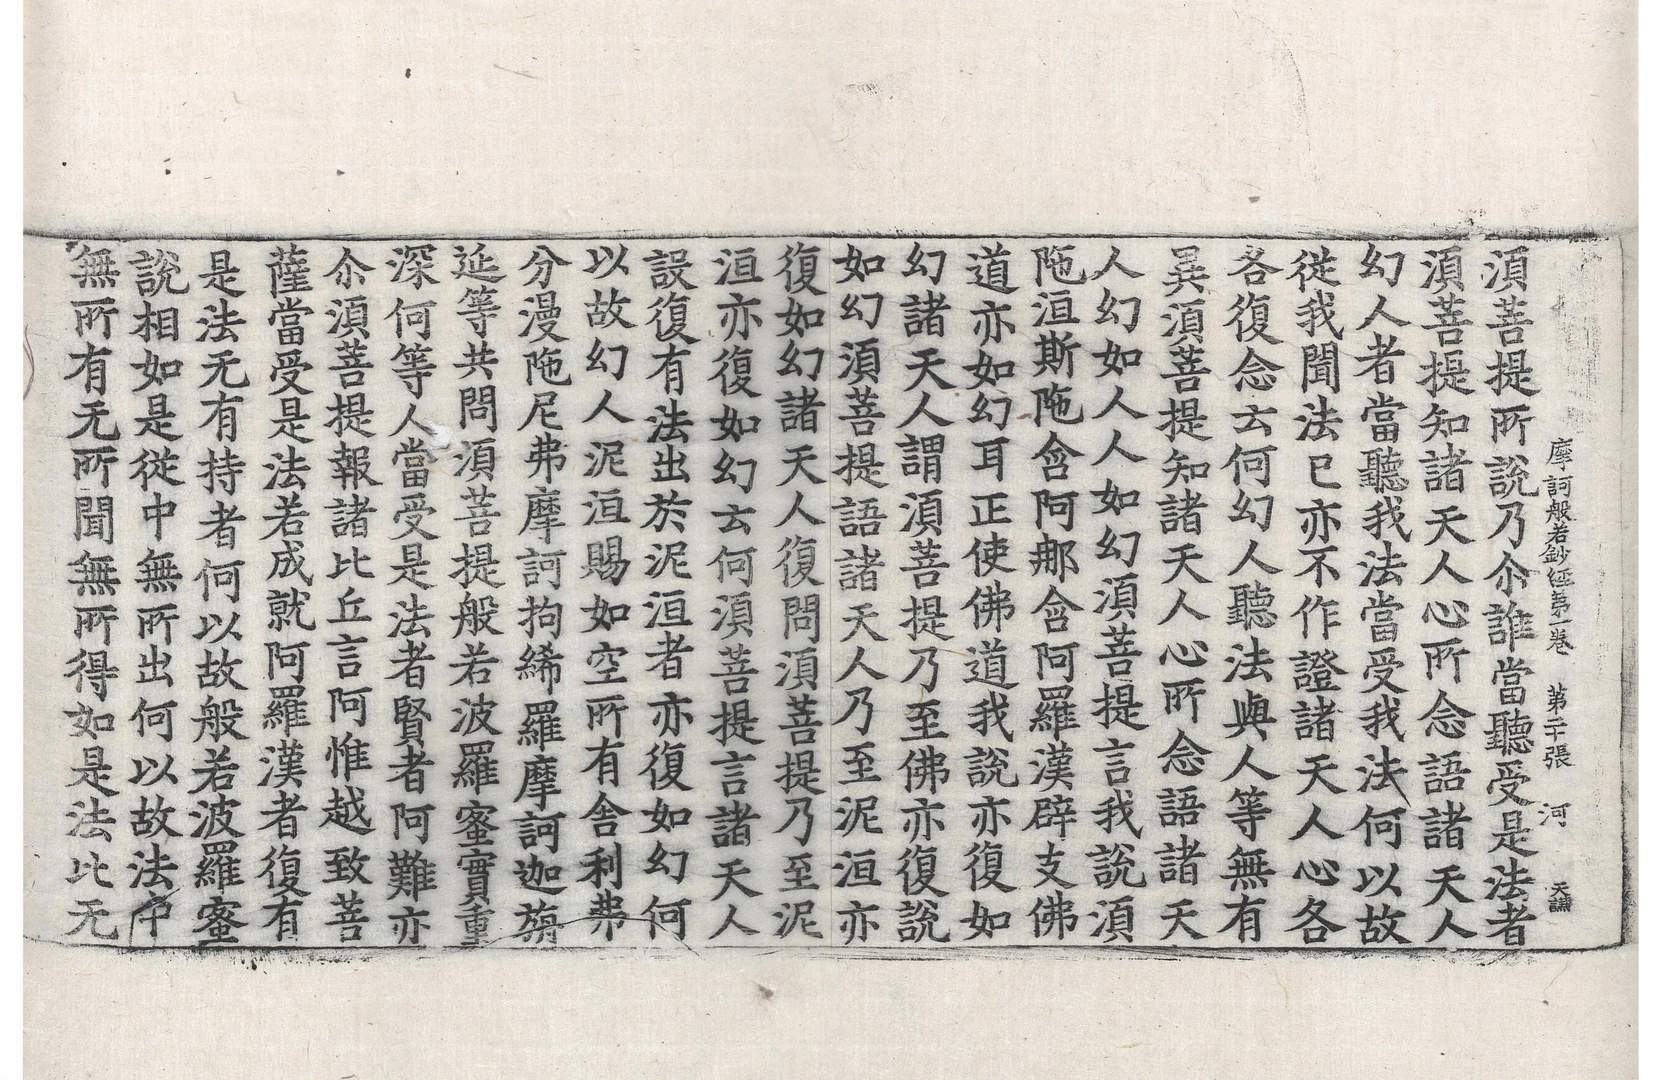 摩訶般若鈔經第一卷 第二十張 河 天譜
須菩提所說乃尒誰當聽受是法者
須菩提知諸天人心所念語諸天人
幻人者當聽我法當受我法何以故
從我聞法已亦不作證諸天人心各
各復念云何幻人聽法與人等無有
異須菩提知諸天人心所念語諸天
人幻如人人如幻須菩提言我說須
陁洹斯陁含阿那含阿羅漢辟支佛
道亦如幻耳正使佛道我說亦復如
幻諸天人謂須菩提乃至佛亦復說
如幻須菩提語諸天人乃至泥洹亦
復如幻諸天人復問須菩提乃至泥
洹亦復如幻云何須菩提言諸天人
設復有法出於泥洹者亦復如幻何
以故幻人泥洹賜如空所有舍利弗
分漫陁尼弗摩訶拘絺羅摩訶迦旃
延等共問須菩提般若波羅蜜實重
深何等人當受是法者賢者阿難亦
尒須菩提報諸比丘言阿惟越致菩
薩當受是法若成就阿羅漢者復有
是法无有持者何以故般若波羅蜜
說相如是從中無所出何以故法中
無所有无所聞無所得如是法比无